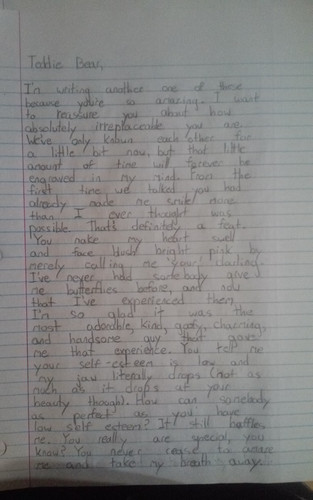 Tobbie Bear,
I'm writing another one of these
because you're so amazing. I want
to reassure you about how
absolutely irreplaceable you are.
We've only known each other for
a little bit now, but that little
amount of time will forever be
engraved in my mind. From the
first time we talked you had
already made me smile more
than I ever thought was
possible. That's definitely a feat.
You make my heart swell
and face blush bright pink by
merely calling me your darling.
I've never had somebody give
me butterflies before, and now
that I've experienced them,
I'm so glad it was the
most adorable, kind, goofy, charming,
and handsome guy that gave
me that experience. You tell me
your self-esteem is low and
my jaw literally drops (not as
much as it drops at your
beauty though). How can somebody
as perfect as you have
low self esteem? It still baffles
me. You really are special, you
know? You never cease to amaze
me and take my breath away.